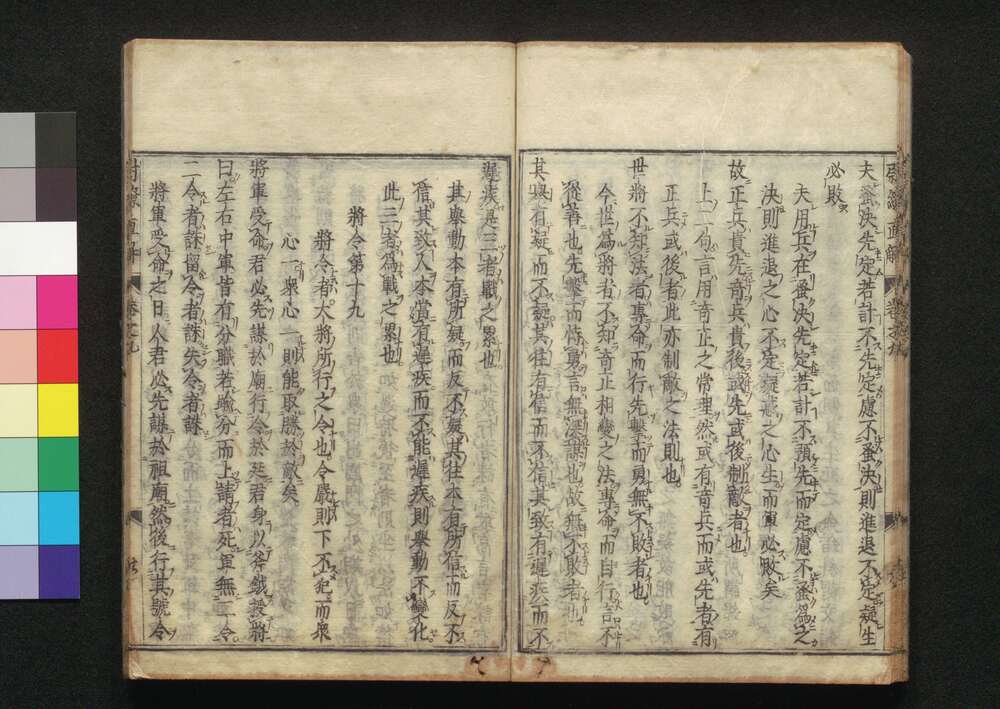 夫蚤決先定若計不先定慮不蚤決則進退不定疑生
必敗
夫用兵在蚤決先定若計不預先而定慮不蚤爲之
決則進退之心不定疑惑之心生而軍必敗矣
故正兵貴先奇兵貴後或先或後制敵者也
上二句言用奇正之常理然或有奇兵而或先者有
正兵或後者此亦制敵之法則也
世將不知法者專命而行先擊而勇無不敗者也
今世爲將者不知奇正相變之法專命而自行言不
從箸也先擊而恃勇言無深謀也故無不敗者也
其舉有疑而不疑其往有信而不信其致有遲疾而不
遲疾是三者戰之累也
其舉動本有所疑而反不疑其往本有所信而反不
信其致人本當有遲疾而不能遲疾則舉動不變化
此三者爲戰之累也
將令第十九
將令者大將所行之令也令嚴則下不犯而衆
心一衆心一則能取勝於敵矣
將軍受命君必先謀於廟行令於廷君身以斧鉞授將
曰左右中軍皆有分職若踰分而上請者死軍無二令
二令者誅留令者誅失令者誅
將軍受命之日人君必先謀於祖廟然後行其號令
尉繚直解
卷之九